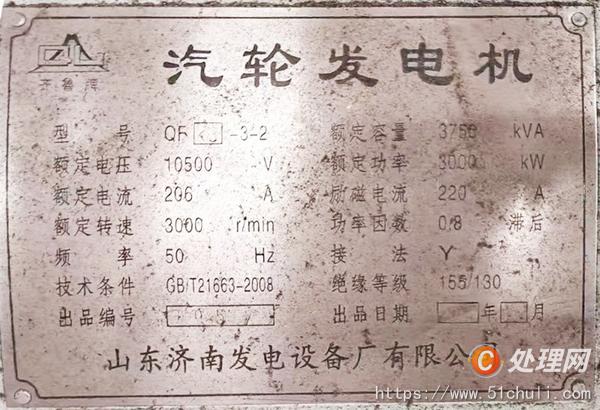 齐鲁牌
汽轮发电机
型号 QF -3-2 额定容量 3750 kVA
额定电压 10500 V 额定功率 3000 kW
额定电流 206 A 励磁电流 220 A
额定转速 3000 r/min 功率因数 0.8 滞后
频率 50 Hz 接法 Y
技术条件 GB/T21663-2008 绝缘等级 155/130
出品编号 出品日期 年 月
山东济南发电设备厂有限公
C 处理网
https://www.51chuli.com